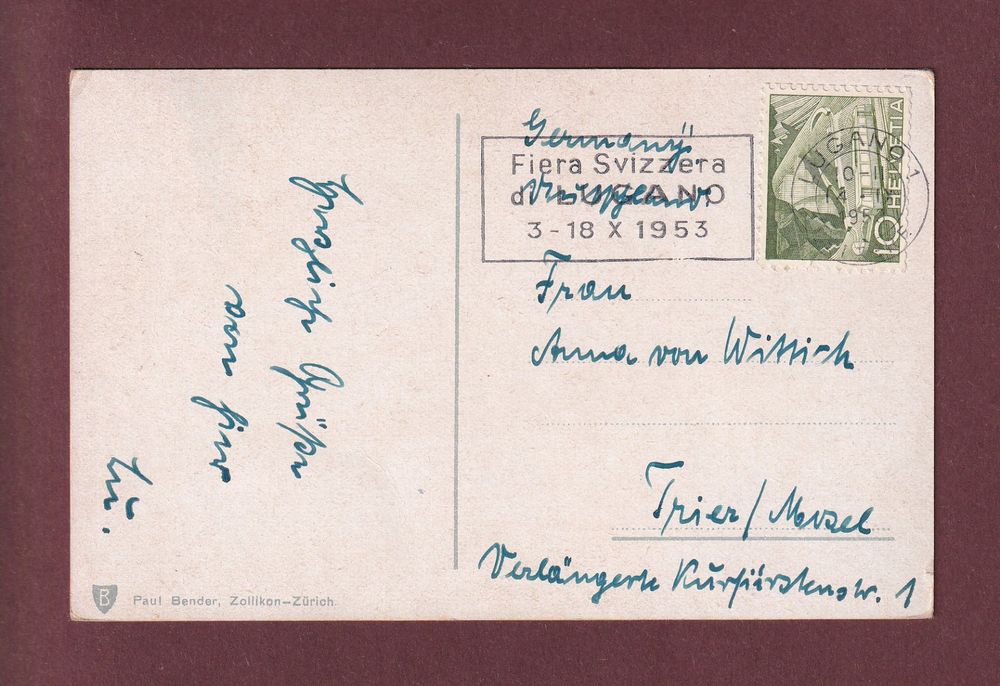 Herzlich Grüße
von Hier
Germany.
Fiera Svizzera
di LUGANO
3-18 X 1953
Deutschland.
HELVETIA
10
LUGANO 1
Frau
Anna von Wittich
Trier/Mosel
Verlängerte Kurfürstenstr. 1
B
Paul Bender, Zollikon–Zürich.